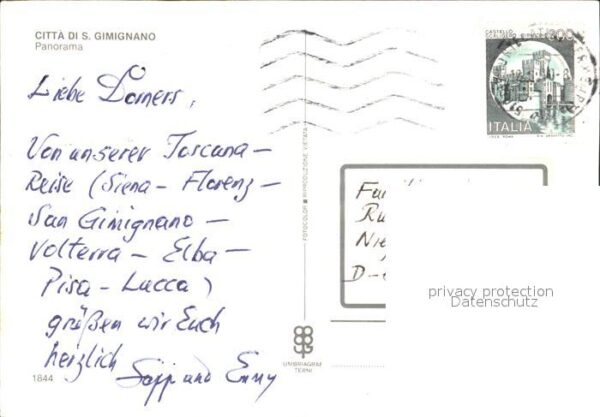 CITTÀ DI S. GIMIGNANO
Panorama
Liebe Dorners,
Von unserer Toscana-
Reise (Siena - Florenz -
San Gimignano -
Volterra - Elba -
Pisa - Lucca)
grüßen wir Euch
herzlich
Sepp und Enny
1844
FOTOCOLOR RIPRODUZIONE VIETATA
UMBRIAGRAF
TERNI
CASTELLO
ITALIA
Fa
Ru
Nie
D-
privacy protection
Datenschutz